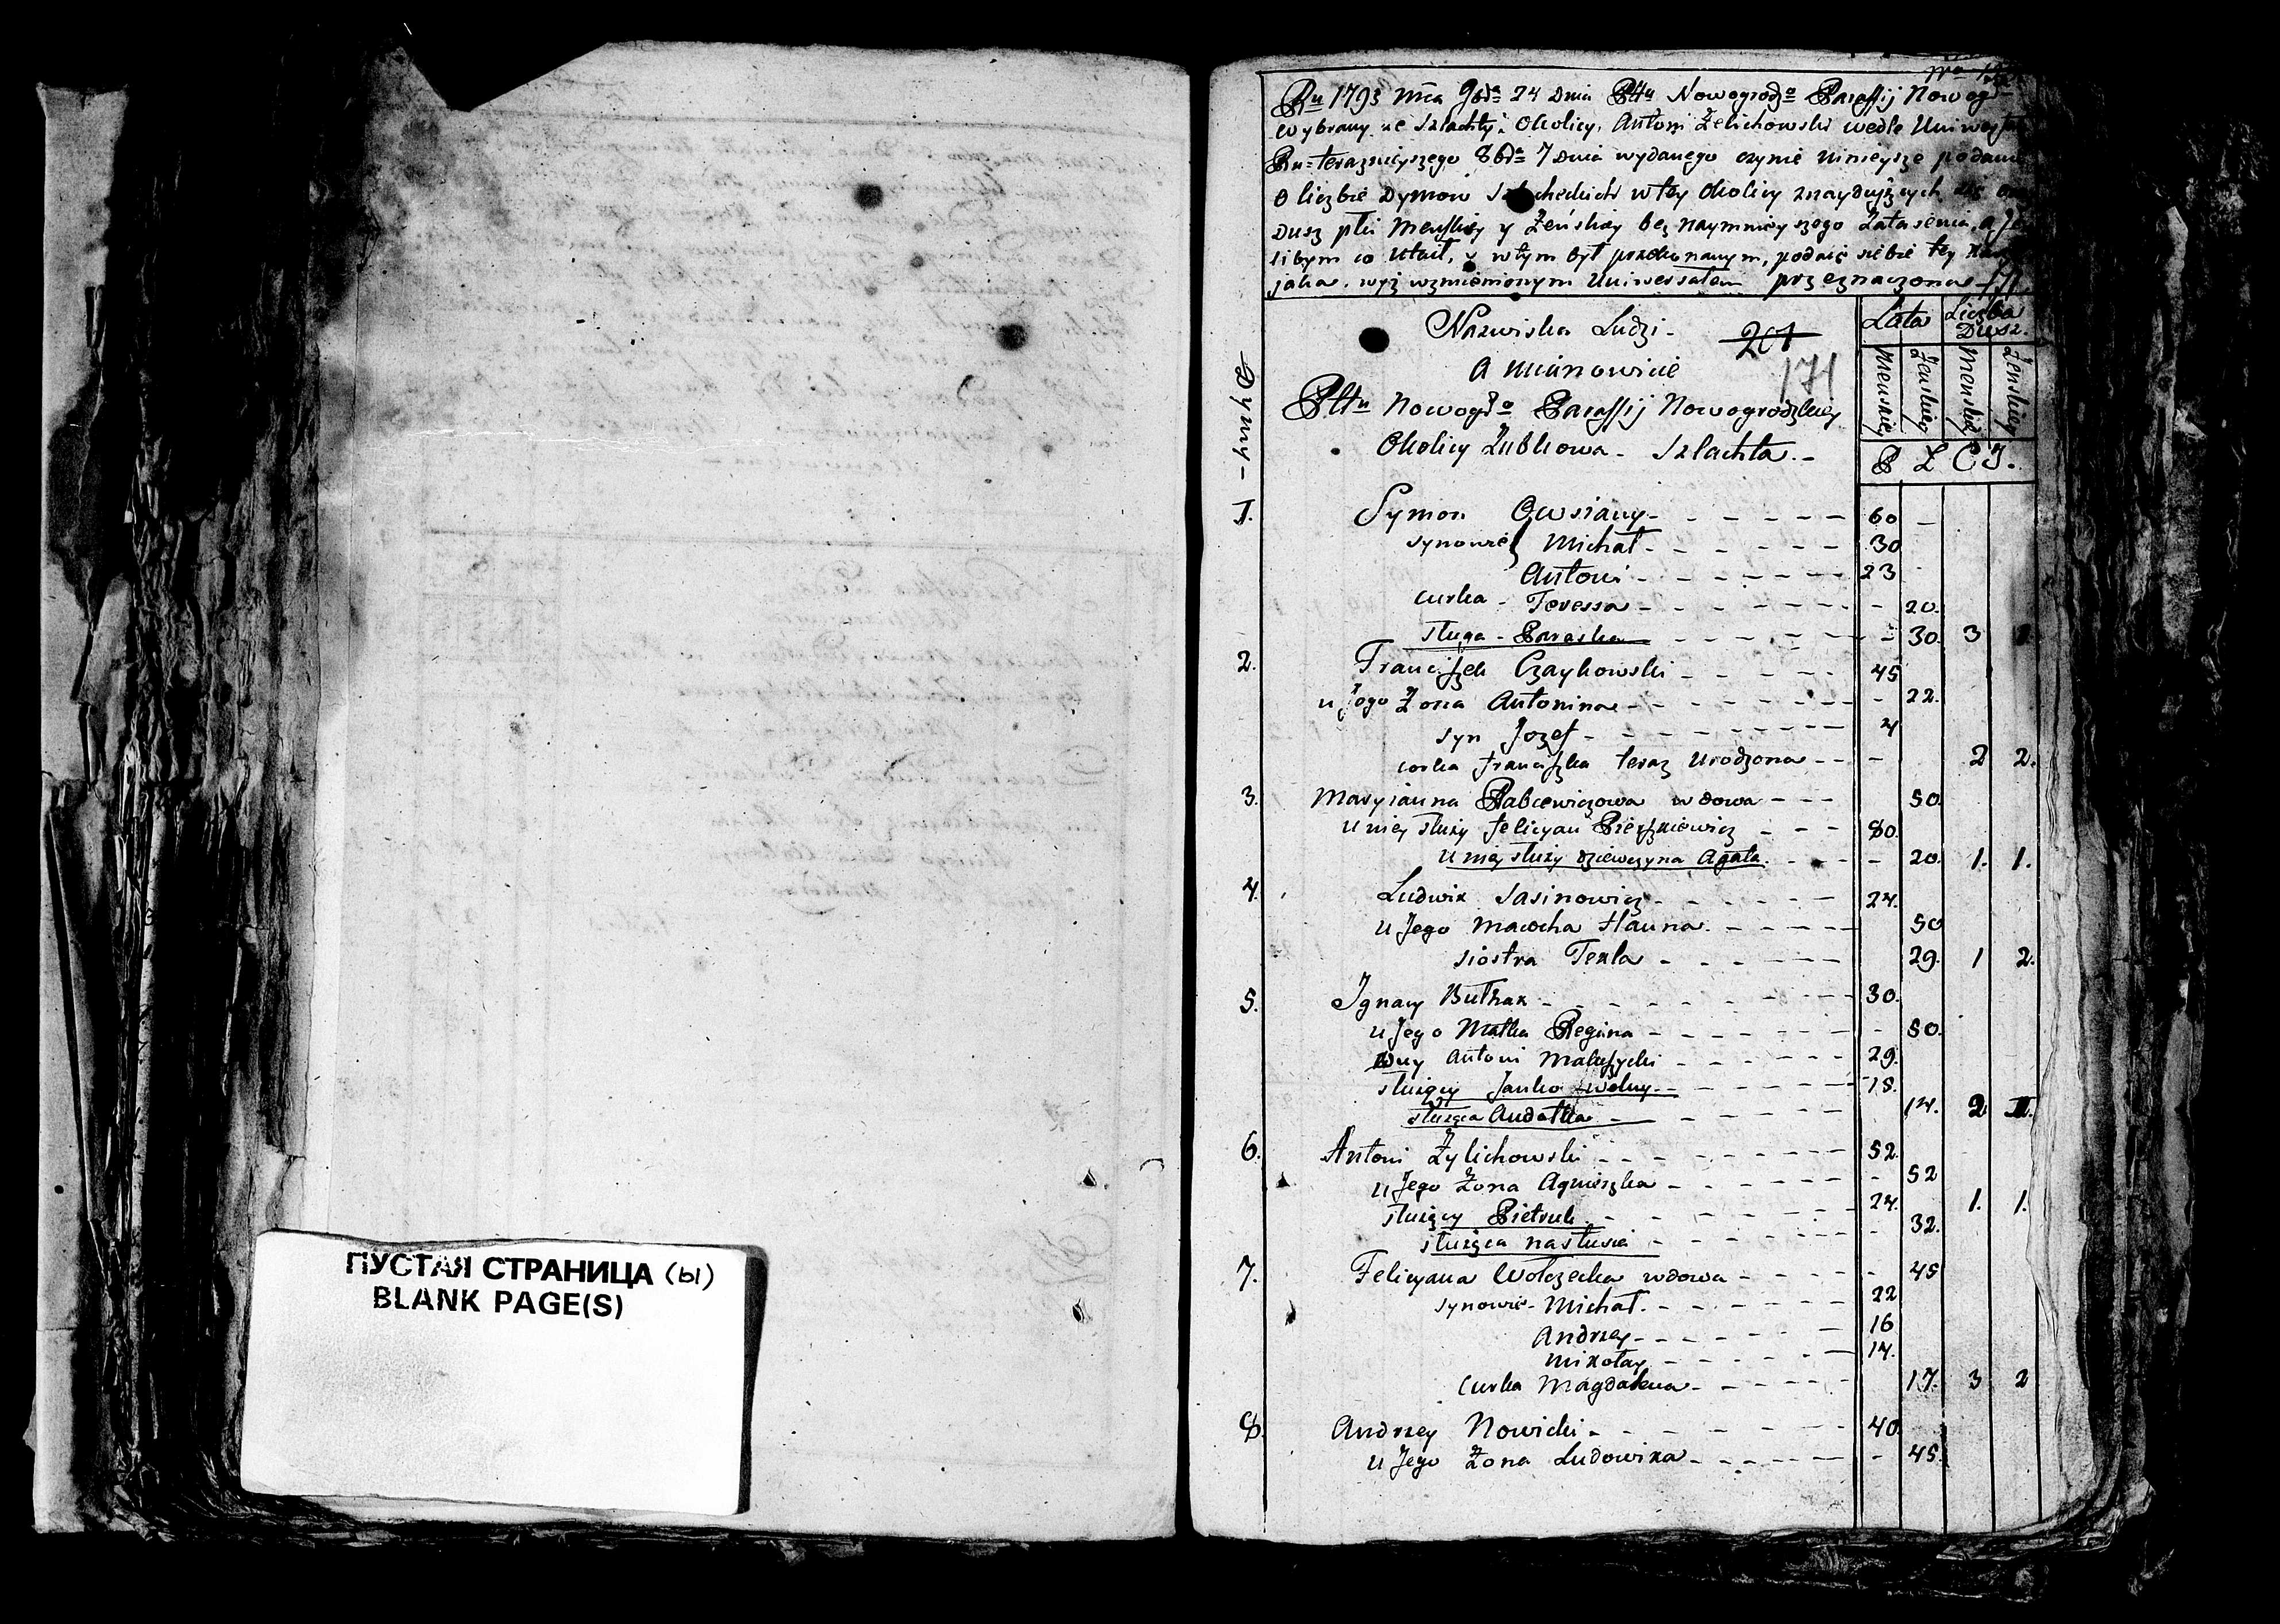 ПУСТАЯ СТРАНИЦА (ы)
BLANK PAGE(S)
Ru 1793 mca 9bra 24 Dnia Pttu Nowogrodzo Paraffij Nowogdo
wybrany ze Szlachty Okolicy, Antoni Żelichowski wedle
Ru terazniejszego 8bra 7 Dnia wydanego czynie nineysze
o liczbie Dymow w tey Okolicy znayduiących się
Dusz płci Menskiey y Żeńskiey bez naymnieyszego Zatajenia, a
libym co utaił, y wtym był przekonanym, podaię siebie tey
jaka wyż wzmienionym Uniwersałem przeznaczona
Nazwiska Ludzi - 201
A mianowicie 171
Pttu Nowogdo Paraffij Nowogrodzkiey
Okolicy Żubkowa - Szlachta. -
Dymy -
Lata Liczba Dusz.
Menskiey Żenskiey Menskiey Żenskiey
P Z C J.
1. Symon Owsiany - 60 -
synowie Michał - 30
Antoni - 23
curka - Teressa - - 20.
sługa - Paraska - - 30. 3
2. Franciszek Czaykowski - 45
u Jego Żona Antonina - - 22.
syn Jozef - 4
corka Franciszka teraz Urodzona - - 2 2.
3. Maryianna Babcewiczowa wdowa - 50.
U niey służy Felicyan 80.
U niey służy dziewczyna Agata. - 20. 1. 1.
4. Ludwik Sasinowicz - 24.
u Jego Macocha Hanna. - 50
siostra Tekla - 29. 1 2.
5. Ignacy Bułhak - 30.
u Jego Matka Regina - - 50.
Antoni Małuszycki - 29.
służący Janko - 18.
służąca Audotka - 14. 2.
6. Antoni Żylichowski - 52.
u Jego Żona Agnieszka - - 52
służący Pietruk - 24. 1. 1.
służąca nastusia - - 32.
7. Felicyana Wołczecka wdowa - - 45
synowie - Michał. - 22
Andrzey - 16
Mikołay - 14.
Curka Magdalena - 17. 3 2
8. Andrzey Nowicki - 40.
u Jego Żona Ludowika - - 45.